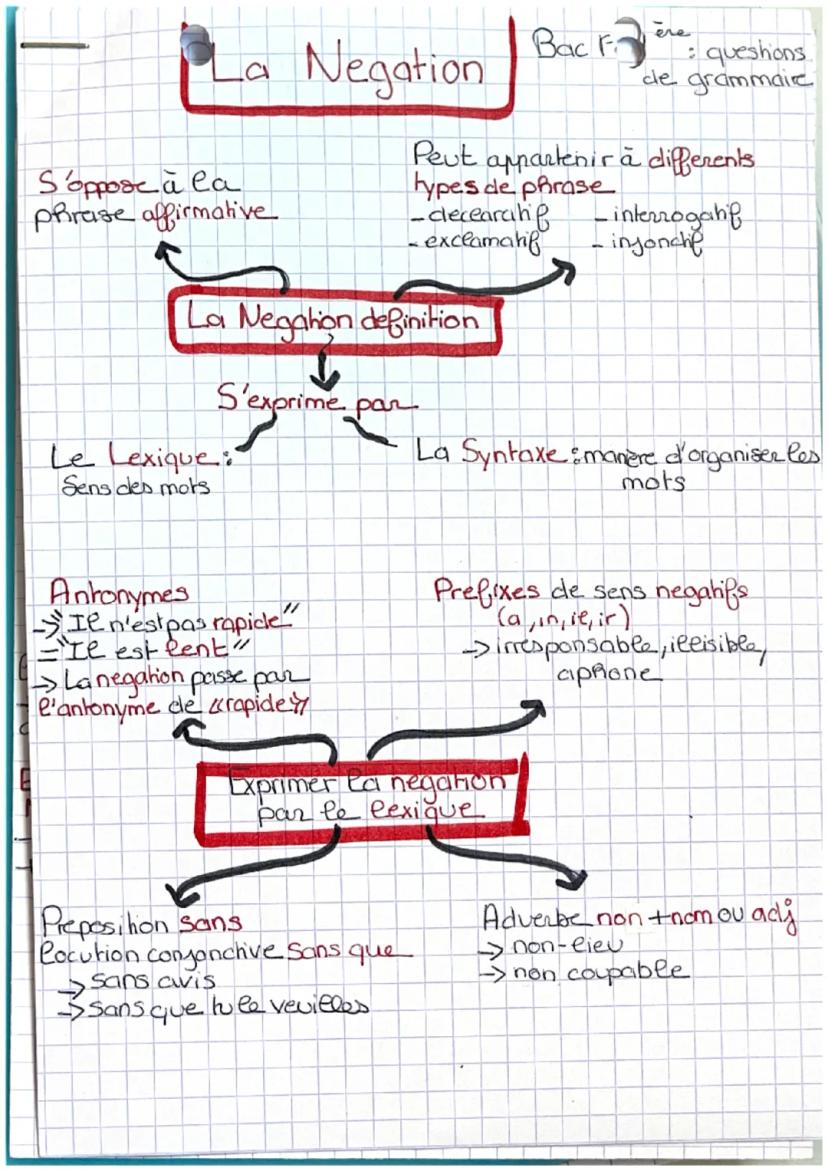 La Negation
Bac F ère : questions
de grammaire
S'oppose à la
phrase affirmative
Peut appartenir à differents
types de phrase
- declaratif - interrogatif
- exclamatif - injonctif
La Negation definition
S'exprime par
Le Lexique :
Sens des mots
La Syntaxe : manière d'organiser les
mots
Antonymes
-> "Il n'est pas rapide"
= "Il est lent"
-> La negation passe par
l'antonyme de «rapide»
Prefixes de sens negatifs
(a, in, il, ir)
-> irresponsable, illisible,
aphone
Exprimer la negation
par le lexique
Preposition sans
locution conjonctive sans que
-> sans avis
-> sans que tu le veuilles
Adverbe non + nom ou adj
-> non-lieu
-> non coupable